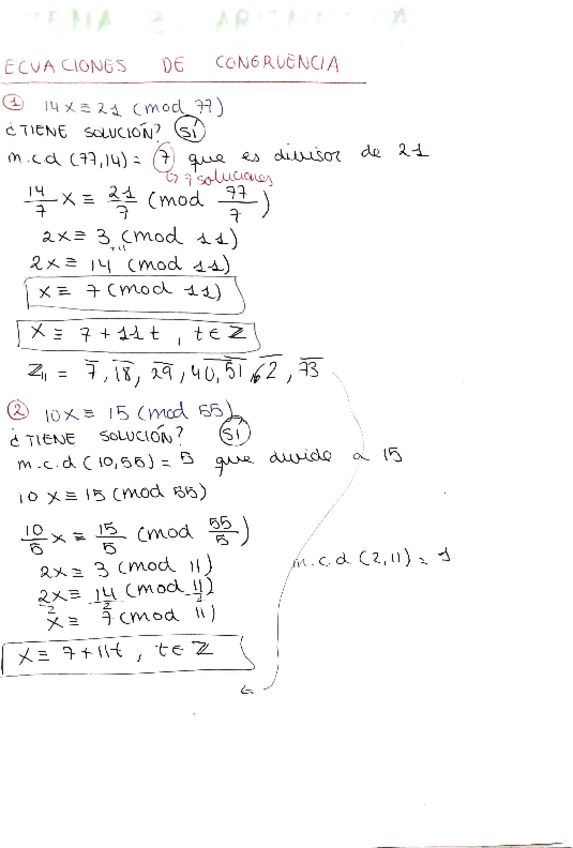 TEMA 3: ARITMÉTICA
ECUACIONES DE CONGRUENCIA
① 14x ≡ 21 (mod 77)
¿TIENE SOLUCIÓN? SÍ
m.c.d (77,14) = 7 que es divisor de 21
↳ 7 soluciones
14/7 x ≡ 21/7 (mod 77/7)
2x ≡ 3 (mod 11)
+11
2x ≡ 14 (mod 11)
x ≡ 7 (mod 11)
x ≡ 7 + 11t , t ∈ ℤ
ℤ11 = 7, 18, 29, 40, 51, 62, 73
② 10x ≡ 15 (mod 55)
¿TIENE SOLUCIÓN? SÍ
m.c.d (10,55) = 5 que divide a 15
10 x ≡ 15 (mod 55)
10/5 x ≡ 15/5 (mod 55/5)
2x ≡ 3 (mod 11)
m.c.d (2,11) = 1
2x/2 ≡ 14/2 (mod 11/1)
x ≡ 7 (mod 11)
x ≡ 7 + 11t , t ∈ ℤ